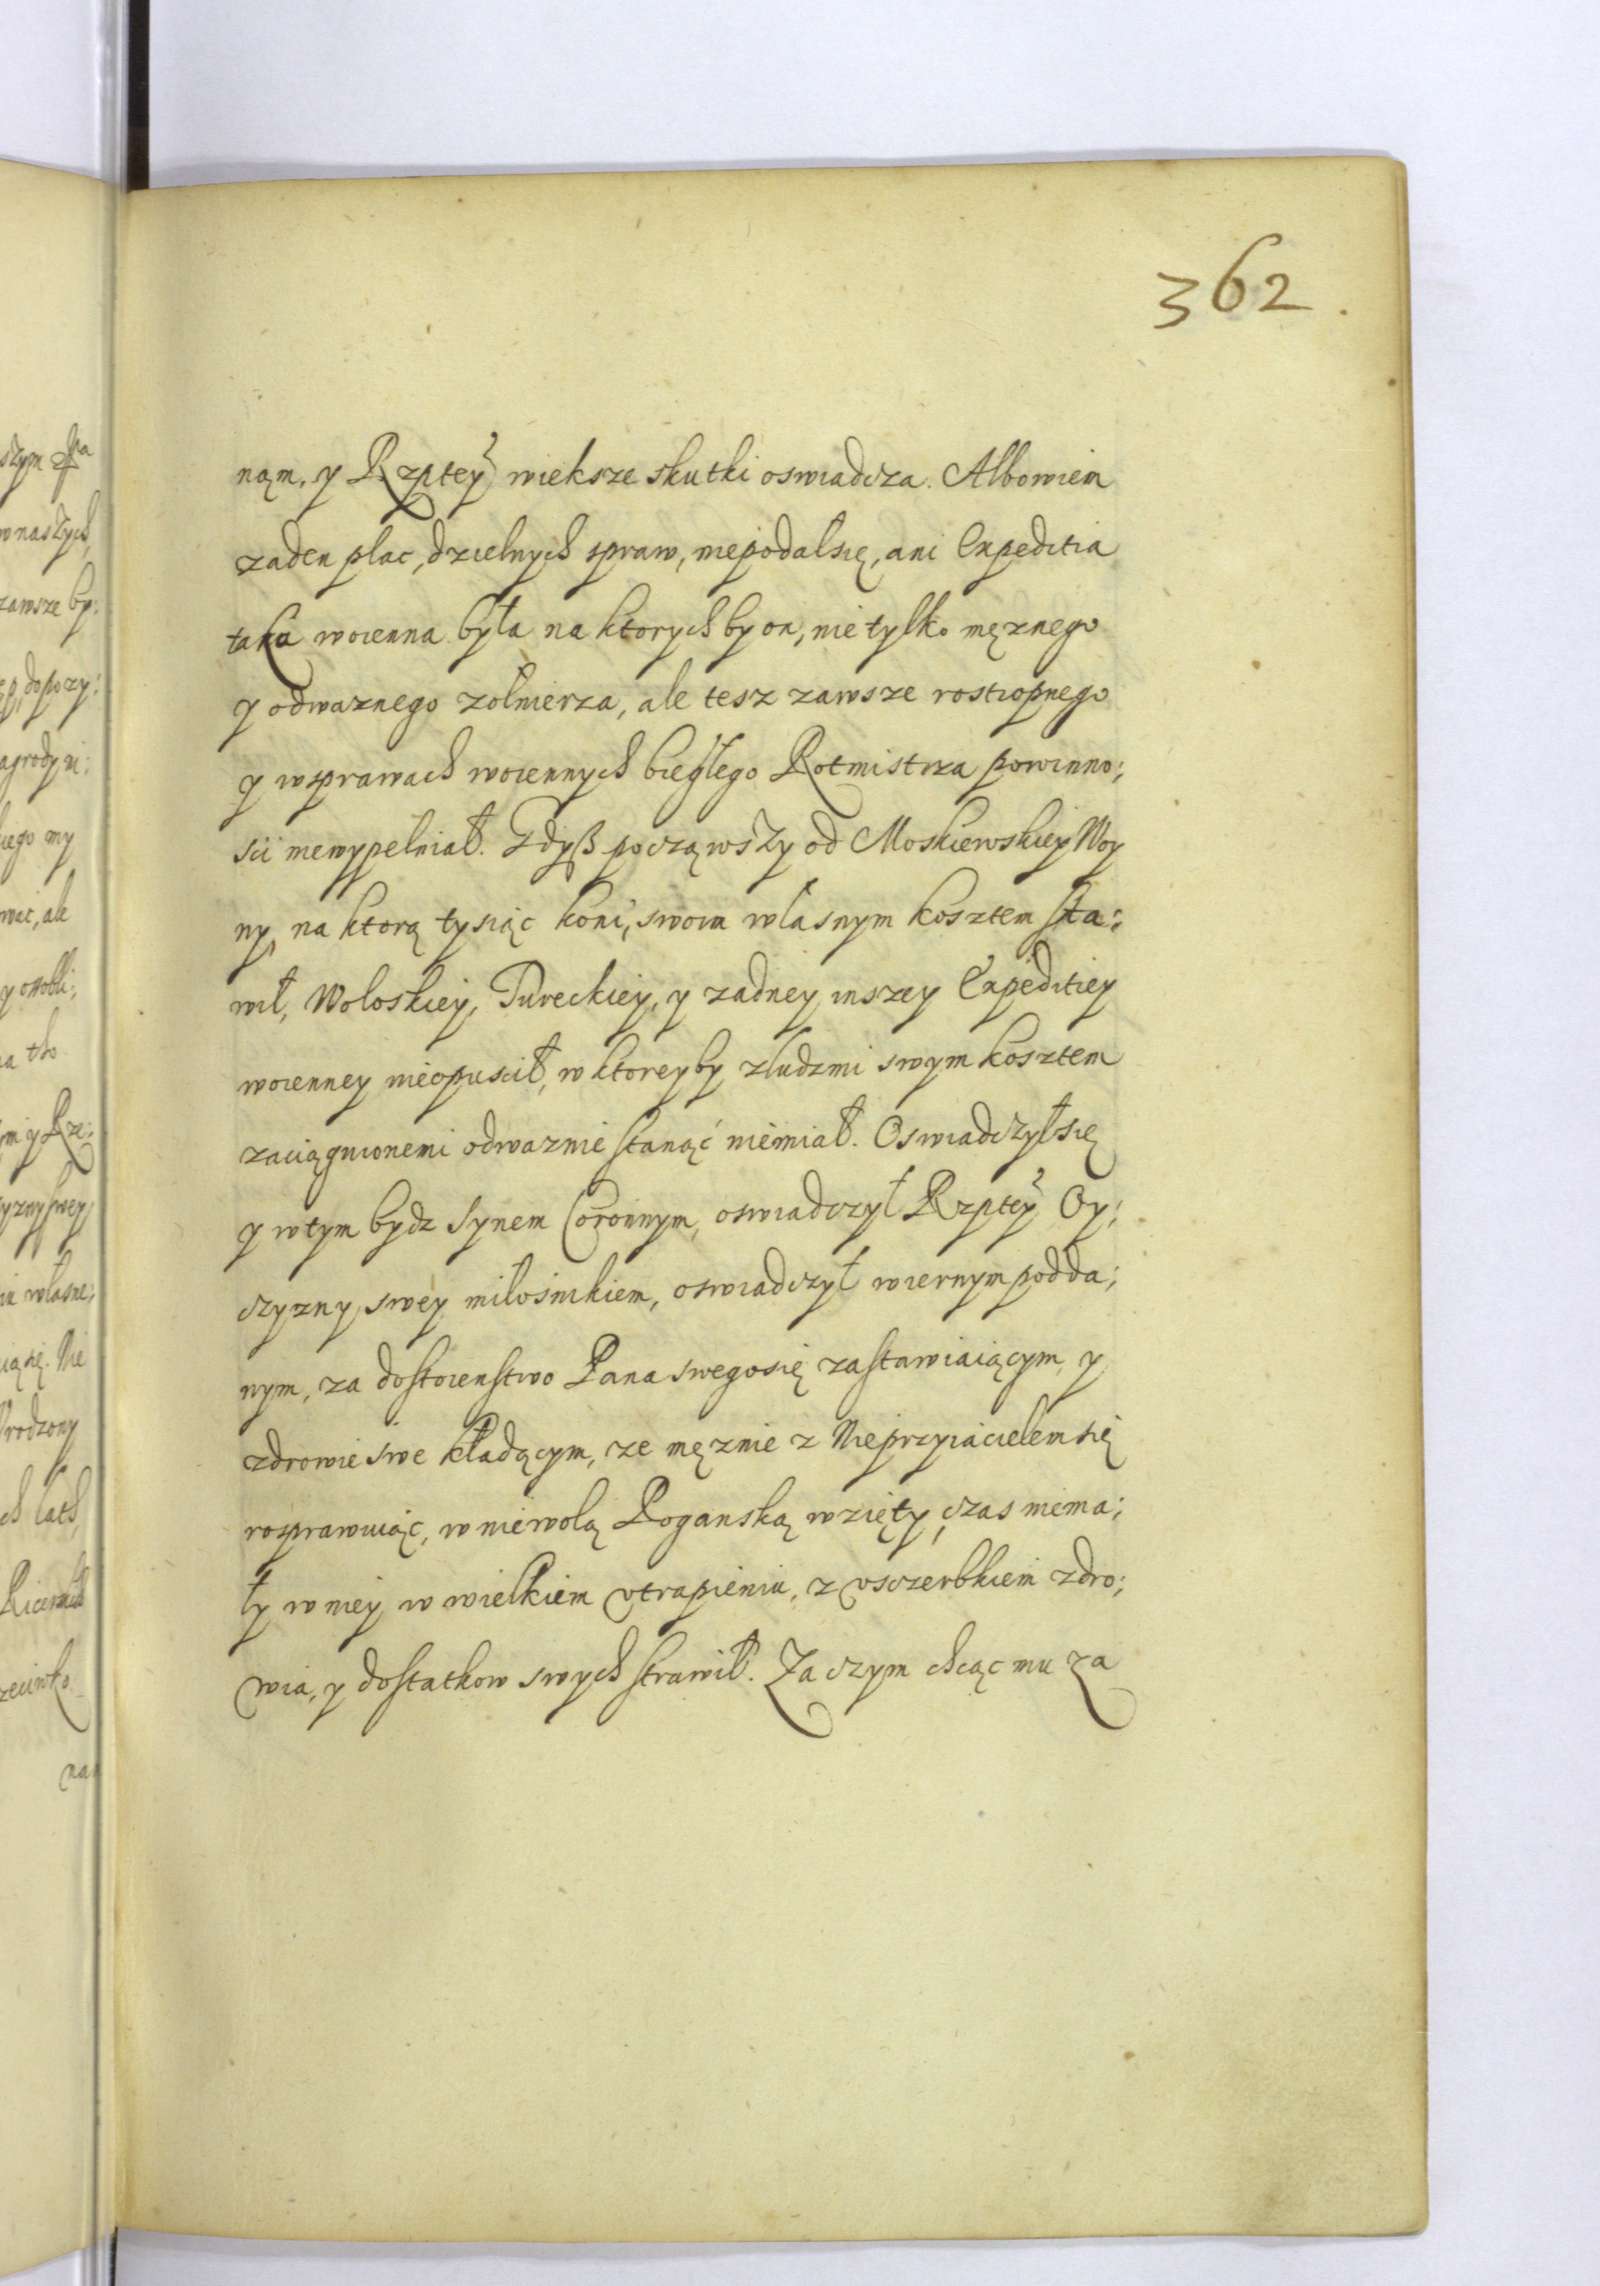 362.
nąm, y Rzptey większe skutki oswiadcza. Albowiem
zaden plac, dzielnych spraw, niepodalsię, ani Expeditia
taka woienna była na ktorych by on, nie tylko męznego
y odwaznego zolnierza, ale tesz zawsze rostropnego
y wsprawach woiennych biegłego Rotmistrza powinno;
sci niewypełniał. Gdyß począwszy od Moskiewskiey Woy
ny, na ktorą tysiąc koni, swoim własnym kosztem sta;
wił, Woloskiey, Tureckiey, y zadney inszey Expeditiey
woienney nieopuscił, w ktoreyby zludzmi swym kosztem
zaciągnionemi odwaznie stanąć niemiał. Oswiadczyłsię
y wtym bydz Synem Coronnym, oswiadczył Rzptey Oy;
czyzny swey miłośnikiem, oswiadczył wiernym podda;
nym, za dostoienstwo Pana swegosię zastawiaiącym, y
zdrowie swe kładącym, ze męznie z Nieprzyiacielem się
rosprawuiąc, w niewolą Poganską wzięty, czas niema;
ły w niey w wielkiem vtrapieniu, z vsczerbkiem zdro;
wia, y dostatkow swych strawił. Zaczym chcąc mu za
szym
wnaszych
zawsze by;
dopozy;
agrody ni;
iego my
wac, ale
y osobli;
a tho
m y Rze;
yzny swey
własne;
Nie
Vrodzony
ch lath,
zeciwko
na